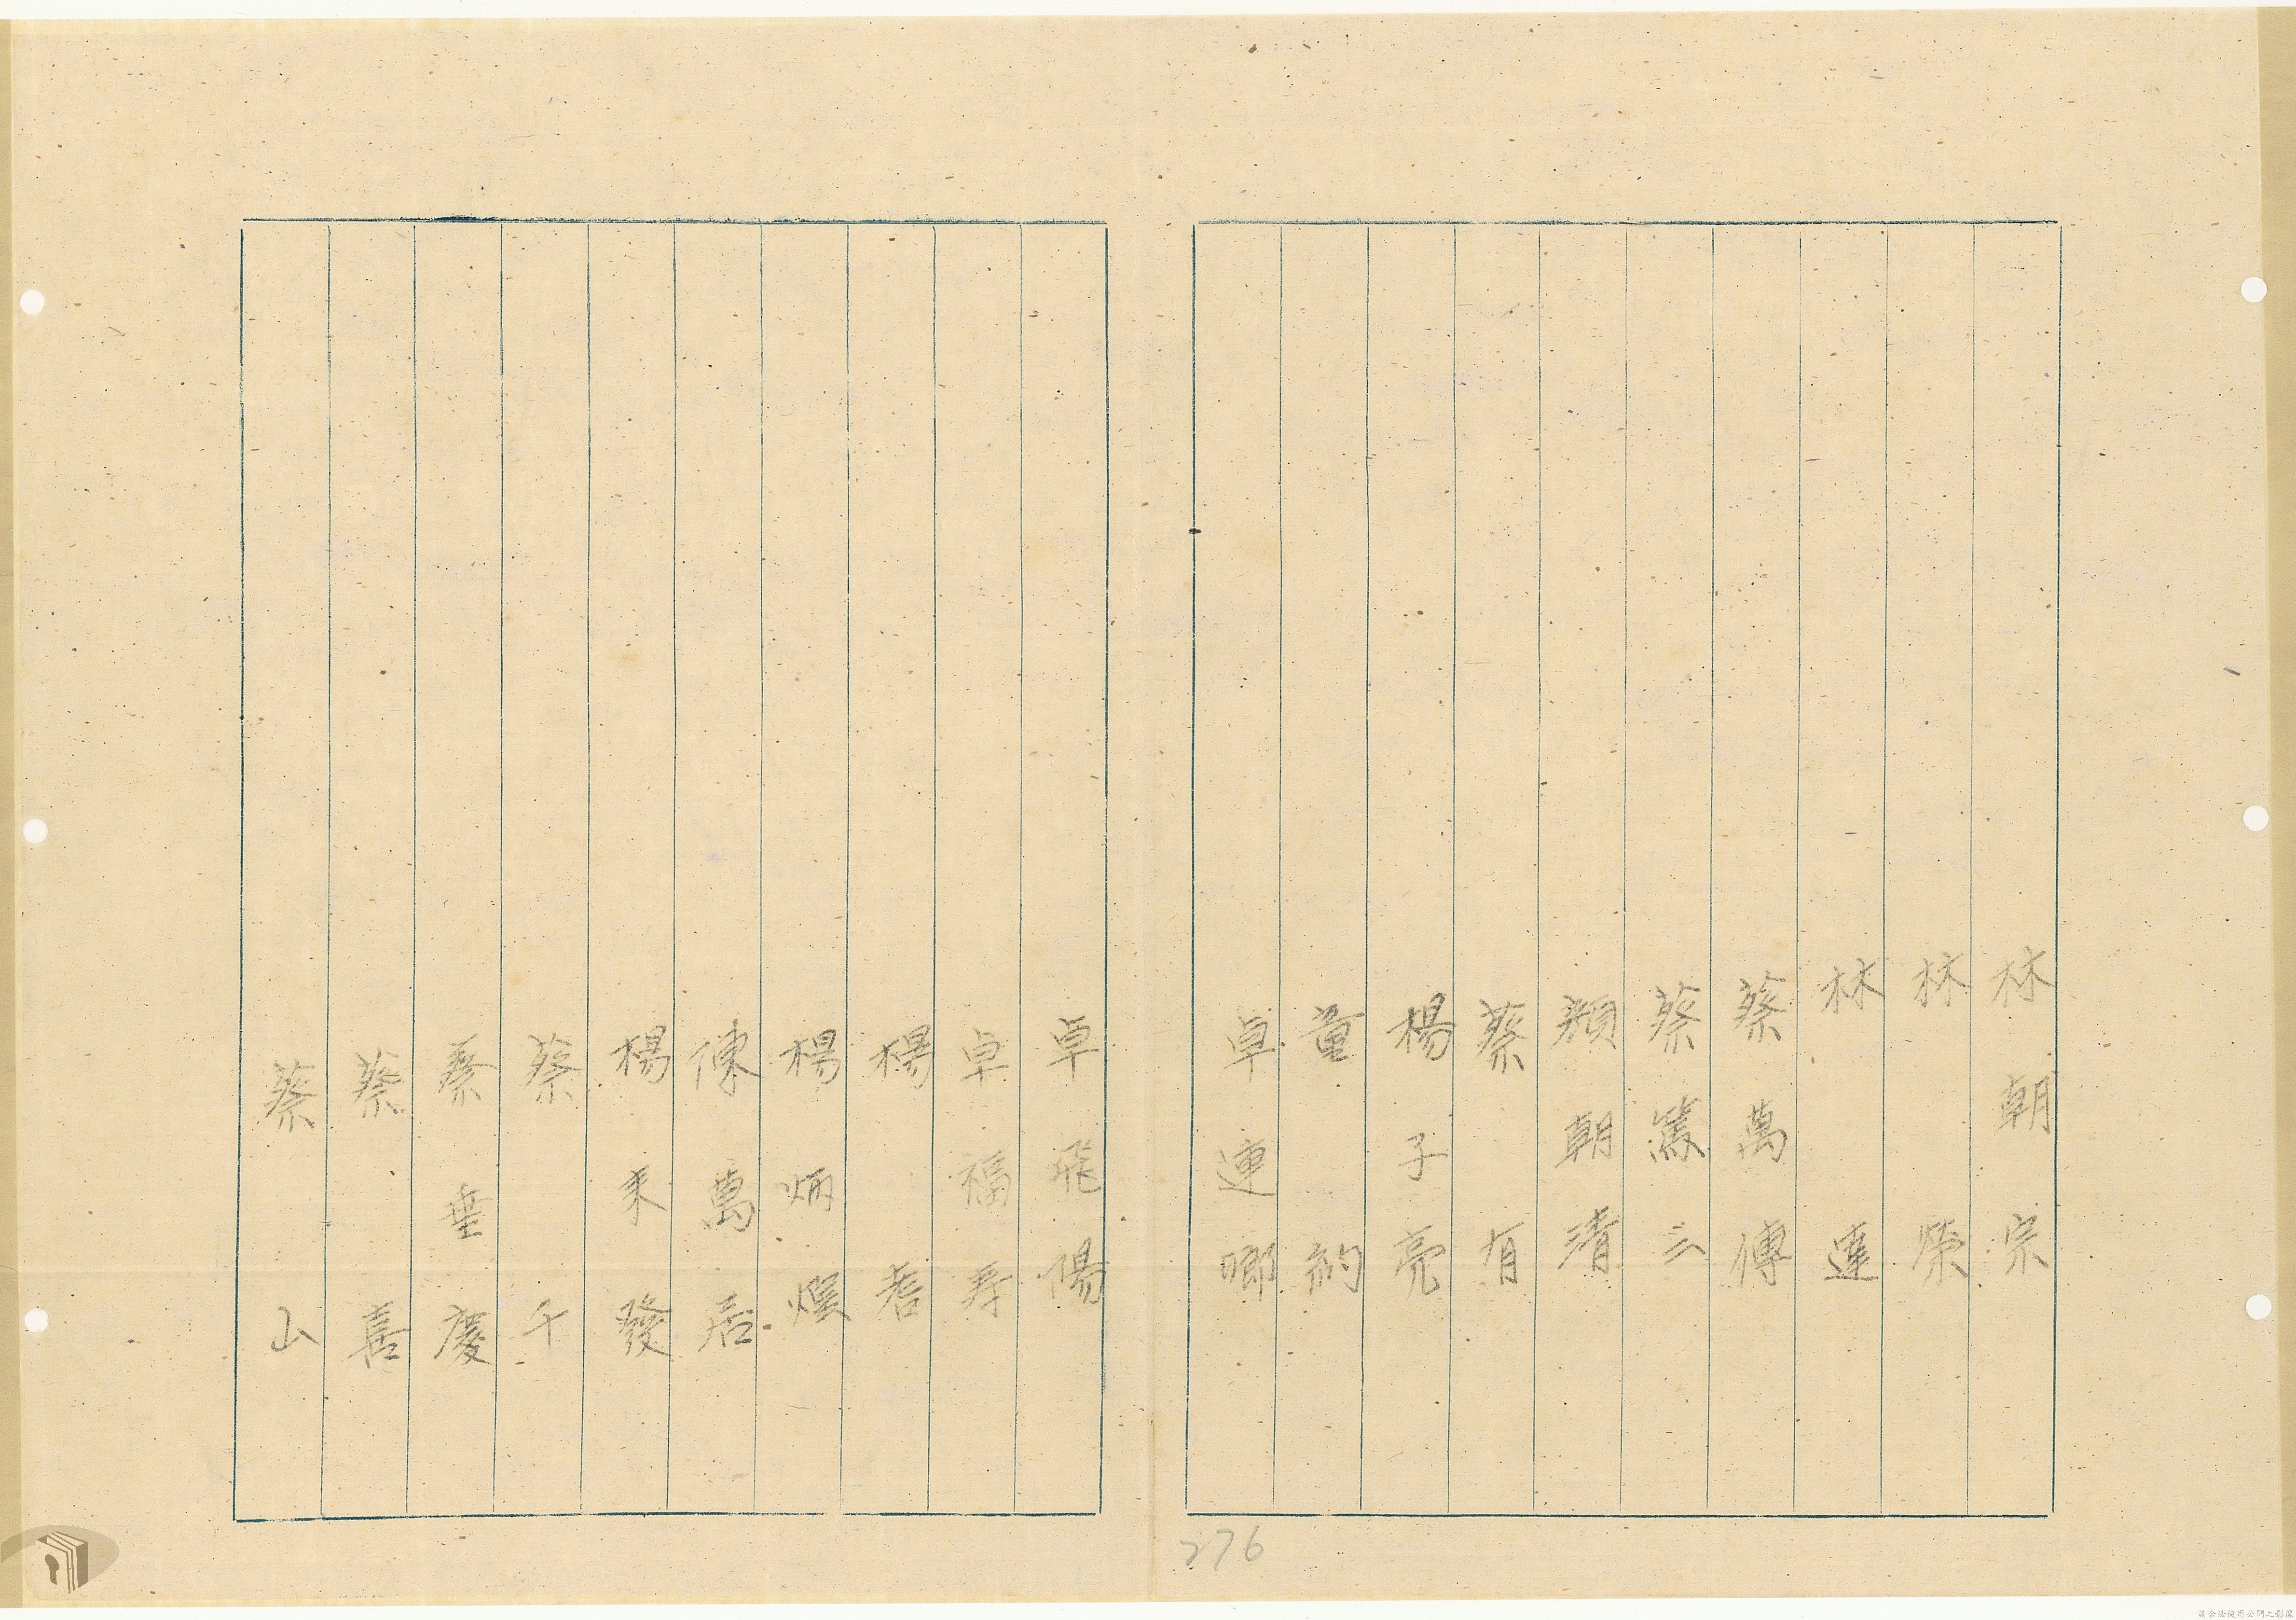 林朝宗
林榮
林達
蔡萬傳
蔡篤三
顏朝清
蔡有
楊子亮
童約
卓連卿
卓飛陽
卓福寿
楊
楊炳煌
陳萬居
楊来發
蔡千
蔡垂慶
蔡喜
蔡山
276
請合法使用公開之影像